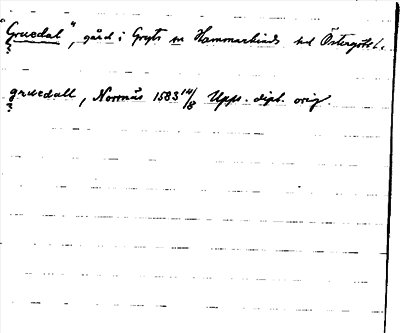 "Gruedal", gård i Gryts sn Hammarkinds hd Östergötl.
gruedall, Norrnäs 1583 14/8 Upps. dipl. orig.